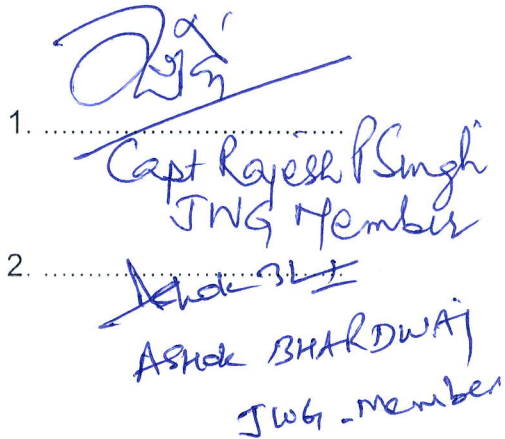 1. ....................
Capt Rajesh P Singh
JWG Member
2. ....................
Ashok
ASHOK BHARDWAJ
JWG - Member